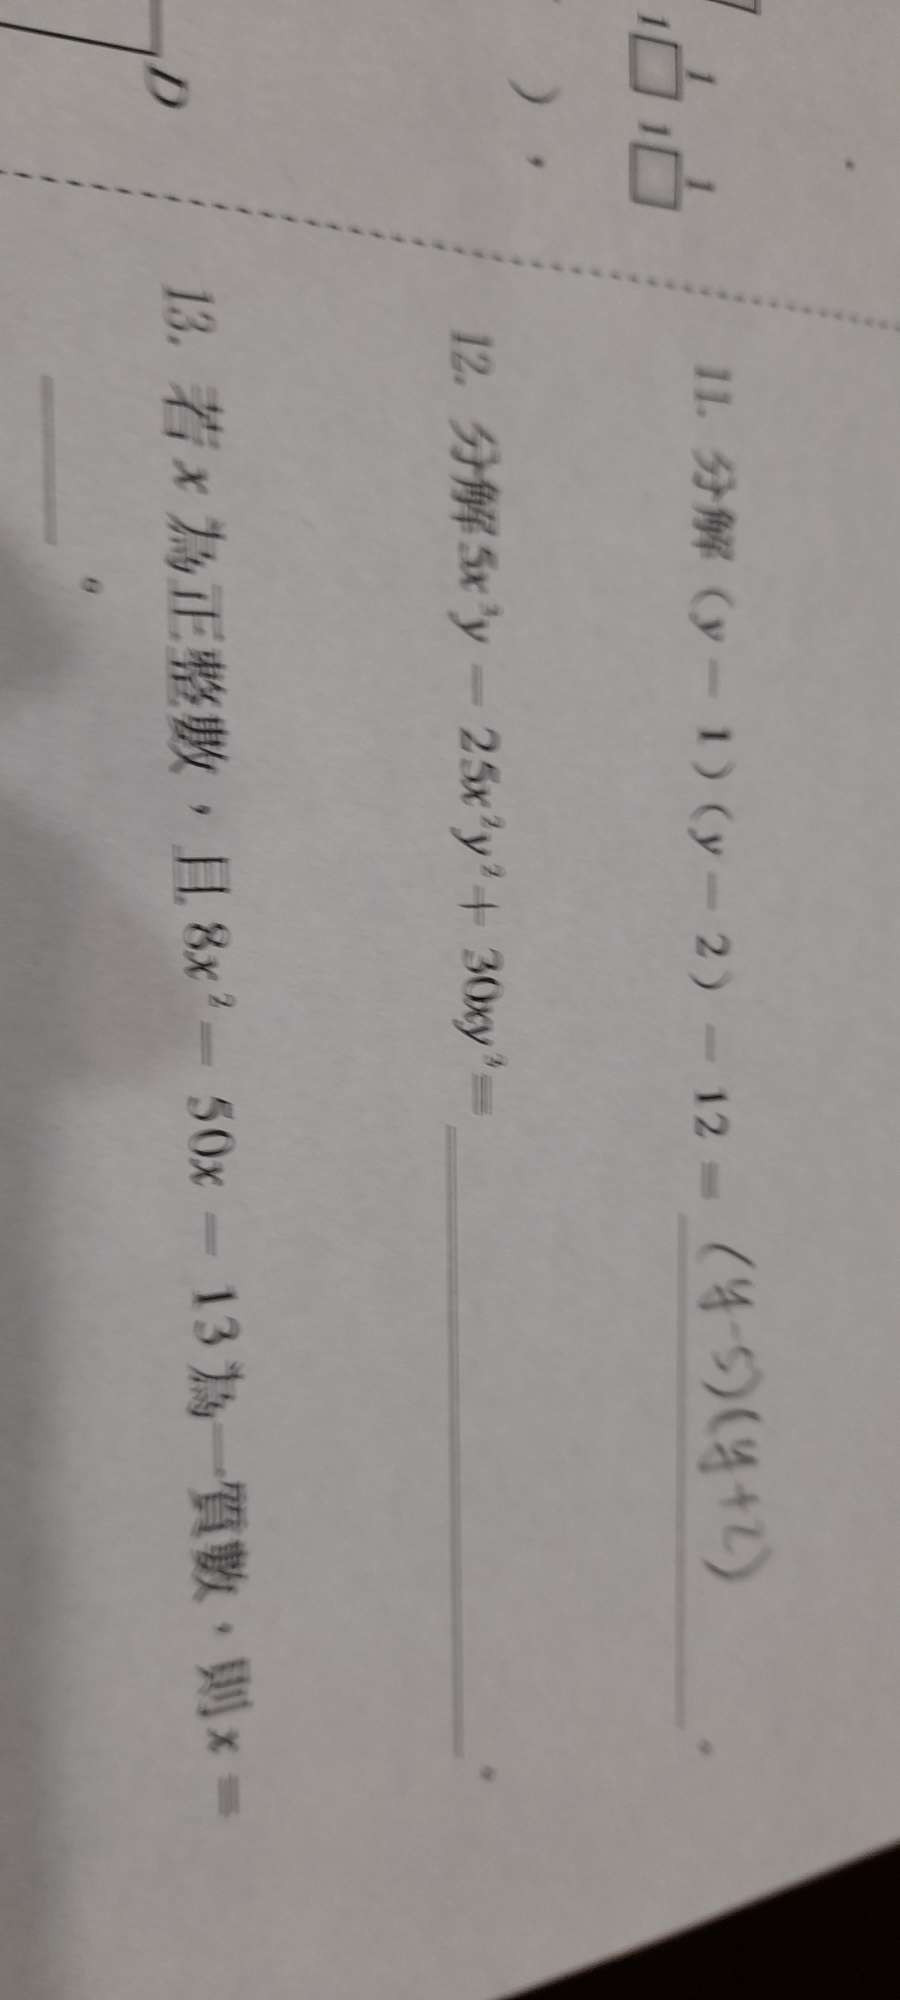 1 1
1 1
) ,
D
11. 分解(y-1)(y-2)-12=(y-5)(y+2)。
12. 分解5x³y-25x²y²+30xy³=。
13. 若x為正整數,且8x²-50x-13為一質數,則x=
。